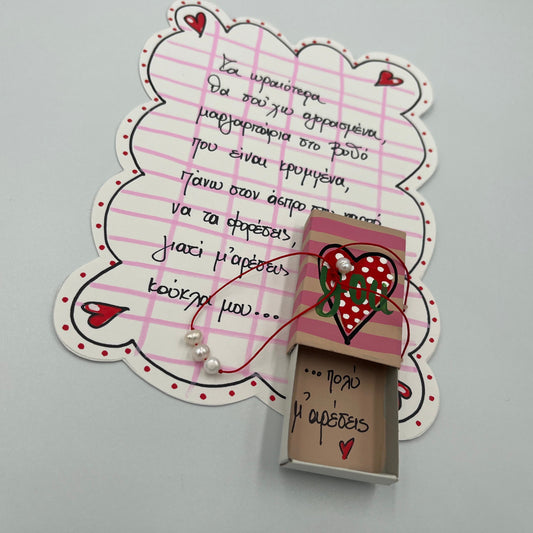 Τα ωραιότερα
θα σου 'χω αγορασμένα,
μαργαριτάρια στο βυθό
που είναι κρυμμένα,
πάνω στον άσπρο
να τα φορέσεις,
γιατί μ'αρέσεις
κούκλα μου...
You
...πολύ
μ'αρέσεις